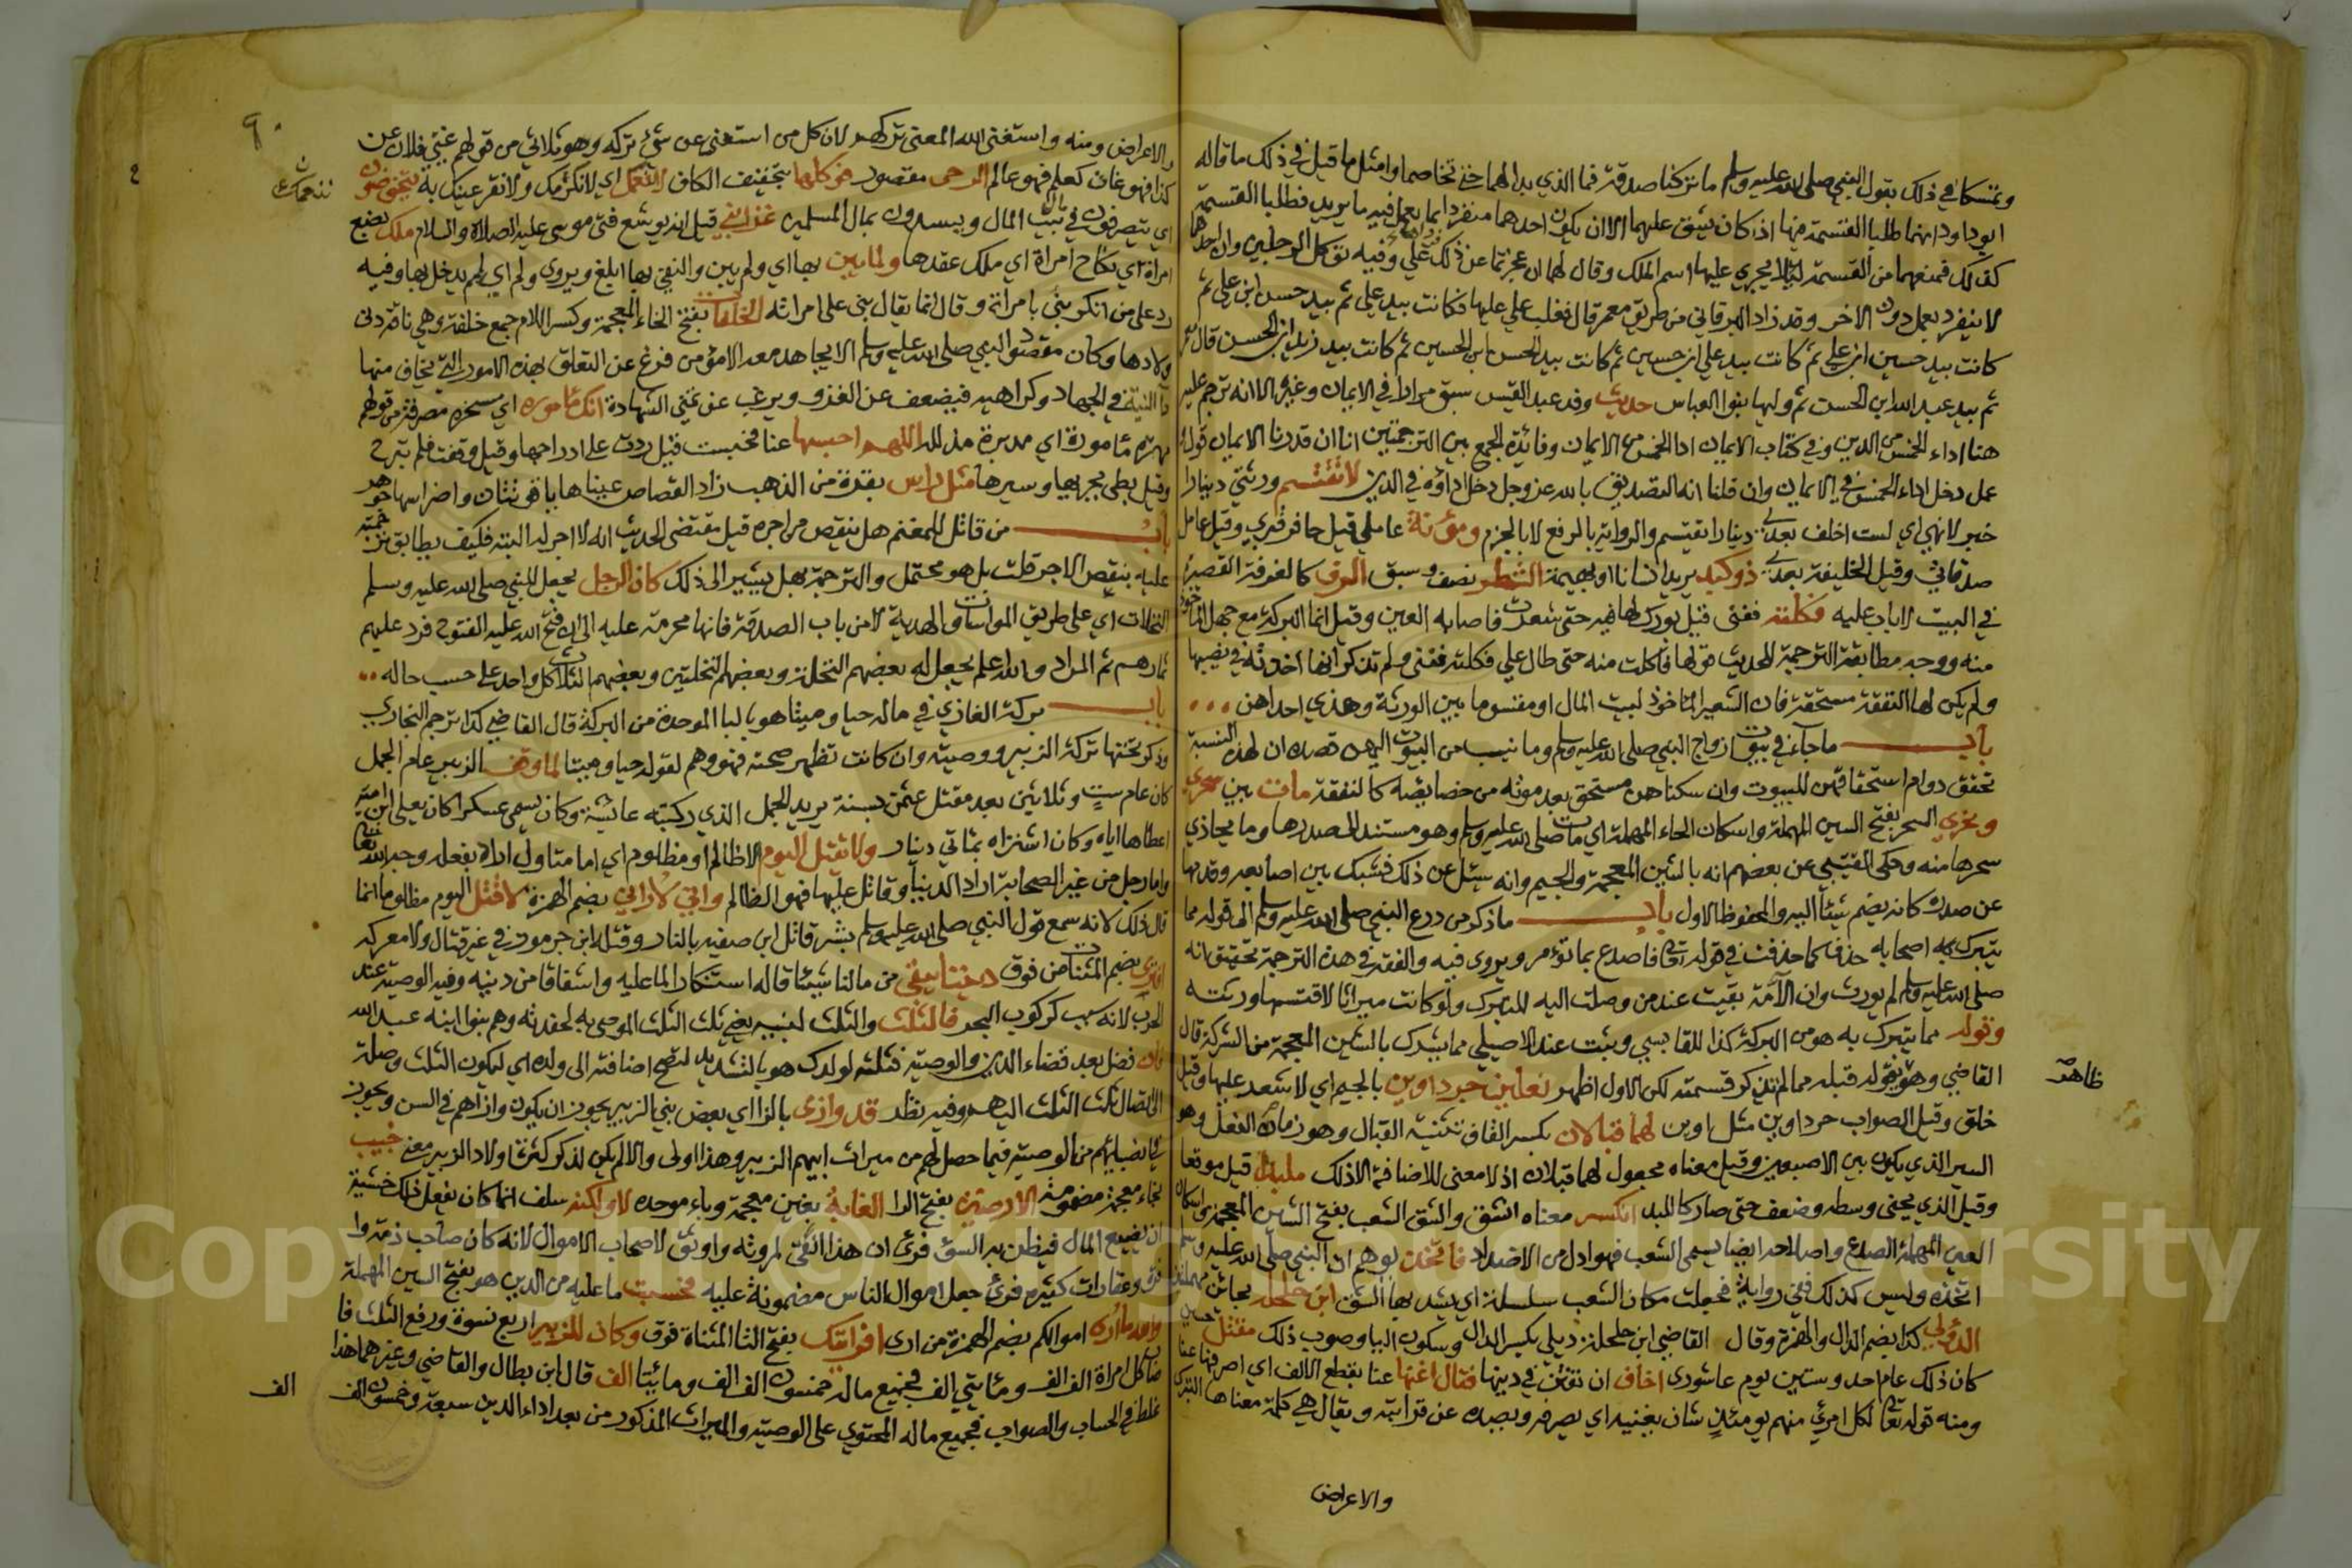 وتمسكا في ذلك بقول النبي صلى الله عليه وسلم ما تركنا صدقة فما الذي بدا لهما حتى تخاصما وامثل ما قيل في ذلك ما قاله
ابو داود انهما طلبا القسمة منها اذ كان يشق عليهما الا ان يكون احدهما منفردا بما يعمل فيه ما يريد فطلبا القسمة
كذلك فمنعهما من القسمة ليلا يجري عليها اسم الملك وقال لهما ان عجزتما عن ذلك وفيه توكل الرجلين وان احدهما
لا ينفرد بعمل دون الاخر وقد زاد البرقاني من طريق معمر قال فغلب علي عليها فكانت بيد علي ثم بيد حسن ابن علي ثم
كانت بيد حسين ابن علي ثم كانت بيد علي ابن حسين ثم كانت بيد الحسن ابن الحسين ثم كانت بيد زيد ابن الحسن قال
ثم بيد عبد الله ابن الحسن ثم وليها بنوا العباس حديث وفد عبد القيس سبق مرارا في الايمان وغيره الا انه ترجم عليه
هنا اداء الخمس من الدين وفي كتاب الايمان ادا الخمس من الايمان وفائدة الجمع بين الترجمتين انا ان قدرنا الايمان قول
عمل دخل اداء الخمس في الايمان وان قلنا انه التصديق بالله عز وجل دخل اداؤه في الدين لا تقتسم ورثتي دينارا
خبر لا نهي اي لست اخلف بعدي دينارا تقتسم والرواية بالرفع لا بالجزم ومؤنة عاملي قيل حافر قبري وقيل عامل
صدقاتي وقيل الخليفة بعدي ذو كبد يريد انسانا او بهيمة الشطر نصف وسق الرف كالغرفة القصيرة
في البيت لا باب عليه فكلته ففني قيل بورك لها فيه حتى شعرت فاصابه العين وقيل انما البركة مع جهل الماخوذ
منه ووجه مطابقة الترجمة للحديث قولها فاكلت منه حتى طال علي فكلته ففني ولم تذكر انها اخذته في نصيبها
ولم يكن لها النفقة مستحقة فان الشعير الماخوذ لبيت المال او مقسوما بين الورثة وهذي احداهن
باب ما جآء في بيوت ازواج النبي صلى الله عليه وسلم وما نسب من البيوت اليهن قصده ان لهذه النسبة
تحقق دوام استحقاقهن للبيوت وان سكناهن مستحق بعد موته من خصائصه كالنفقة مات بين سحري
ونحري السحر بفتح السين المهملة واسكان الحاء المهملة اي مات صلى الله عليه وسلم وهو مستند لصدرها وما يحاذي
سحرها منه وحكى القتيبي عن بعضهم انه بالشين المعجمة والجيم وانه سئل عن ذلك فشبك بين اصابعه وقدمها
عن صدره كانه يضم شيئا اليه والمحفوظ الاول باب ما ذكر من درع النبي صلى الله عليه وسلم الى قوله مما
يتبرك به اصحابه حذف كما حذفت في قوله تعالى فاصدع بما تؤمر ويروى فيه والفقه في هذه الترجمة تحقيق انه
صلى الله عليه وسلم لم يورث وان الآمة بقيت عند من وصلت اليه للتبرك ولو كانت ميراثا لاقتسمها ورثته
وقوله مما يتبرك به هو من البركة كذا للقابسي وثبت عند الاصيلي مما يشرك بالشين المعجمة من الشركة قال
القاضي وهو بقوله قبله مما لم تذكر قسمته لكن الاول اظهر نعلين جرداوين بالجيم اي لا شعر عليها وقيل
ظاهر
خلق وقيل الصواب جرداوين مثل اوين لهما قبالان بكسر القاف تثنية القبال وهو زمام النعل وهو
السير الذي يكون بين الاصبعين وقيل معناه مجعول لهما قبلان اذ لا معنى للاضافة الا ذلك ملبدا قيل مرقعا
وقيل الذي ثخن وسطه وضعف حتى صار كاللبد انكسر معناه انشق والشق الشعب بفتح الشين المعجمة واسكان
العين المهملة الصدع واصلاحه ايضا يسمى الشعب فهو اذا من الاضداد فاتخذت يوهم ان النبي صلى الله عليه وسلم
اتخذه وليس كذلك ففي رواية فجعلت مكان الشعب سلسلة اي يشد بها الشق ابن حلحلة بحائين مهملتين
الدؤلي كذا بضم الدال والهمزة وقال القاضي ابن حلحلة ديلي بكسر الدال وسكون اليا وصوب ذلك مقتل حسين
كان ذلك عام احد وستين يوم عاشورى اخاف ان تفتن في دينها فقال اغنها عنا بقطع الالف اي اصرفها عنا
ومنه قوله تعالى لكل امرئ منهم يومئذ شان يغنيه اي يصرفه ويصده عن قرابته ويقال هي كلمة معناها الترك
والاعراض
والاعراض ومنه واستغنى الله المعنى تركهم لان كل من استغنى عن شئ تركه وهو ثلاثي من قولهم غني فلان عن
كذا فهو غان كعلم فهو عالم الرحى مقصور بتخفيف الكاف اي لا نكرمك ولا نقر عينك به يتخوضون
ننعمك
اي يتصرفون في بيت المال ويبسطون بمال المسلمين غزا نبي قيل انه يوشع فتى موسى عليه الصلاة والسلام ملك بضع
امراة اي نكاح امراة اي ملك عقدها ولما يبن بها اي ولم يبن والنفي بها ابلغ ويروى ولم اي لم يدخل بها وفيه
رد على من انكر بنى بامراة وقال انما يقال بنى على امراته الخلفات بفتح الخاء المعجمة وكسر اللام جمع خلفة وهي ناقة دنى
ولادها وكان مقصود النبي صلى الله عليه وسلم الا يجاهد معه الا مؤمن فرغ عن التعلق بهذه الامور التي يخاف منها
النية في الجهاد وكراهيه فيضعف عن الغزو ويرغب عن تمني الشهادة انك مامورة اي مسخرة مصرفة من قولهم
مهرة مامورة اي مدبرة مذللة اللهم احبسها عنا فحبست قيل ردت على ادراجها وقيل وقفت فلم تبرح
وقيل بطئ بحريها وسيرها مثل راس بقرة من الذهب زاد القصاص عيناها ياقوتتان واضراسها جوهر
باب من قاتل للمغنم هل ينقص من اجره قيل مقتضى الحديث انه لا اجر له البتة فكيف يطابق ترجمته
عليه بنقص الاجر قلت بل هو محتمل والترجمة بهل يشير الى ذلك كان الرجل يجعل للنبي صلى الله عليه وسلم
النخلات اي على طريق المواسات والهدية لا من باب الصدقة فانها محرمة عليه الى ان فتح الله عليه الفتوح فرد عليهم
ثمارهم ثم المراد والله اعلم يجعل له بعضهم النخلة وبعضهم النخلتين وبعضهم الثلاث كل واحد على حسب حاله
باب بركة الغازي في ماله حيا وميتا هو بالبا الموحدة من البركة قال القاضي كذا ترجم البخاري
وذكر تحتها تركة الزبير ووصيته وان كانت تظهر صحته فهو وهم لقوله حيا وميتا لما وقف الزبير عام الجمل
كان عام ست وثلاثين بعد مقتل عثمن بسنة يريد الجمل الذي ركبته عائشة وكان يسمى عسكرا كان يعلى ابن امية
اعطاها اياه وكان اشتراه بمائتي دينار ولا يقتل اليوم الا ظالم او مظلوم اي اما متاول اراد بفعله وجه الله تعالى
واما رجل من غير الصحابة اراد الدنيا وقاتل عليها فهو الظالم واني لا اراني بضم الهمزة لا قتل اليوم مظلوما انما
قال ذلك لانه سمع قول النبي صلى الله عليه وسلم بشر قاتل ابن صفية بالنار وقتله ابن جرموز في غير قتال ولا معركة
افترى بضم المثناة من فوق ديننا يبقي من مالنا شيئا قاله استكثارا لما عليه واشفاقا من دينه وفيه الوصية عند
الحرب لانه سبب كركوب البحر فالثلث والثلث لبنيه يعني ثلث الثلث الموصى به لحفدته وهم بنوا ابنه عبد الله
فان فضل بعد قضاء الدين والوصية فثلثه لولدك هو بالتشديد لتصح اضافته الى ولده اي ليكون الثلث وصلة
الى ايصال ثلث الثلث اليهم وفيه نظر قد وازى بالزا اي بعض بني الزبير يجوز ان يكون وازاهم في السن ويجوز
في انصبائهم من الوصية فيما حصل لهم من ميراث ابيهم الزبير وهذا اولى والا لم يكن لذكر كثرة اولاد الزبير معنى خبيب
بخاء معجمة مضمومة الارضين بفتح الرا الغابة بغين معجمة وباء موحدة لا ولكنه سلف انما كان يفعل ذلك خشية
ان يضيع المال فيظن به السئ فرئ ان هذا ابقى لمروته واوثق لاصحاب الاموال لانه كان صاحب ذمة وا
وعقارات كثيرة فرئ جعل اموال الناس مضمونة عليه فحسبت ما عليه من الدين هو بفتح السين المهملة
اموالكم بضم الهمزة من ارى افرايتك بفتح التا المثناة فوق وكان للزبير اربع نسوة ورفع الثلث فا
صاب كل امراة الف الف ومائتي الف فجميع ماله خمسون الف الف ومائيتا الف قال ابن بطال والقاضي وغيرهما هذا
غلط في الحساب والصواب فجميع ماله المحتوي على الوصية والميراث المذكور من بعد اداء الدين سبعة وخمسون الف
الف
Copyright © King Saud University